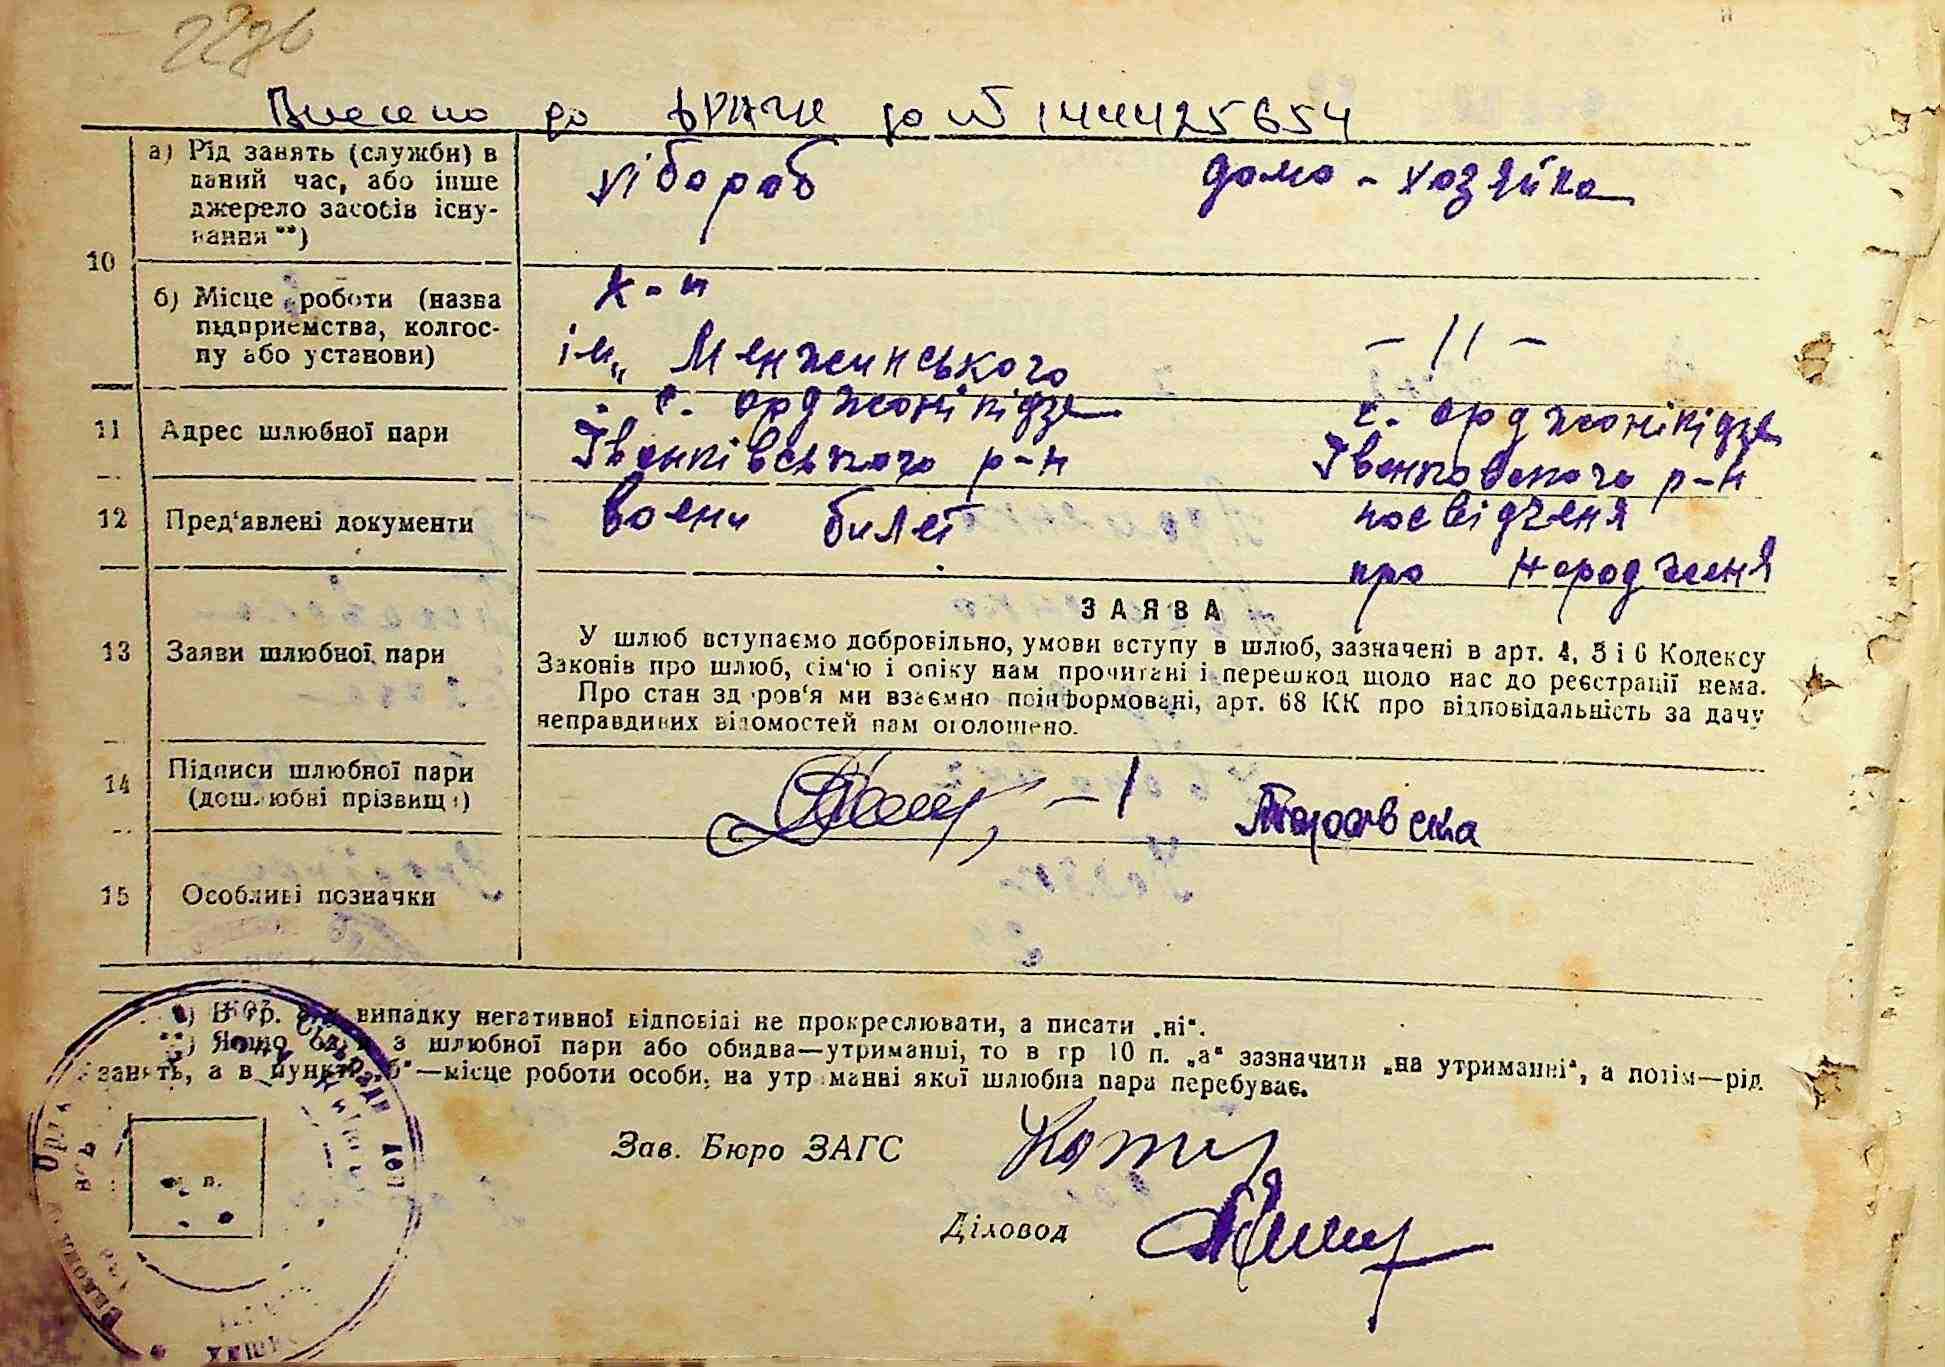 Внесено до ДРАЦС до № 144425654
а) Рід занять (служби) в
даний час, або інше
джерело засобів існу-
вання **)
хібороб
домо-хозяйка
10
б) Місце роботи (назва
підприємства, колгос-
пу або установи)
к-п
ім„ Менжинського
-11-
11
Адрес шлюбної пари
с. орджонікідзе
Івонківського р-н
с. орджонікідзе
Івонковского р-н
12
Пред'явлені документи
воєни билет
посвідченя
про народженя
13
Заяви шлюбної пари
ЗАЯВА
У шлюб вступаємо добровільно, умови вступу в шлюб, зазначені в арт. 4, 5 і 6 Кодексу
Законів про шлюб, сім'ю і опіку нам прочитані і перешкод щодо нас до реєстрації нема.
Про стан здоров'я ми взаємно поінформовані, арт. 68 КК про відповідальність за дачу
неправдивих відомостей нам оголошено.
14
Підписи шлюбної пари
(дошлюбні прізвища)
15
Особливі позначки
*) В гр. випадку негативної відповіді не прокреслювати, а писати „ні".
**) Якщо один з шлюбної пари або обидва—утриманці, то в гр 10 п. „а" зазначити „на утриманні", а потім—рід
занять, а в пункті „б"—місце роботи особи, на утриманні якої шлюбна пара перебуває.
Зав. Бюро ЗАГС
Діловод